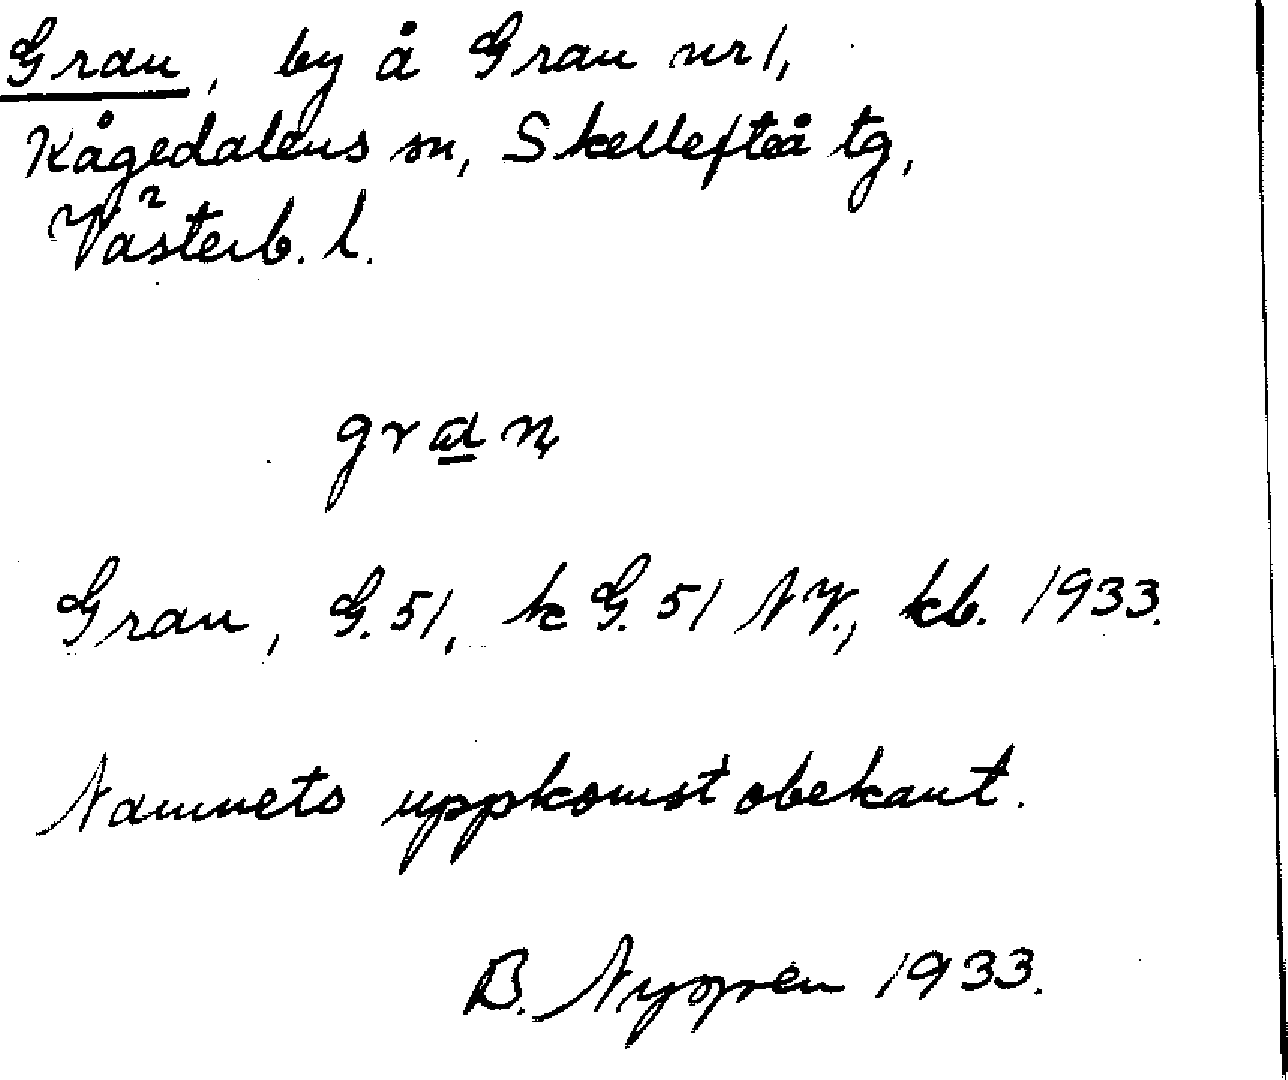 Gran, by å Gran nr 1,
Kågedalens sn, Skellefteå tg,
Västerb. l.
gran
Gran, G. 51, k G. 51 NV., kb. 1933.
Namnets uppkomst obekant.
B. Nygren 1933.